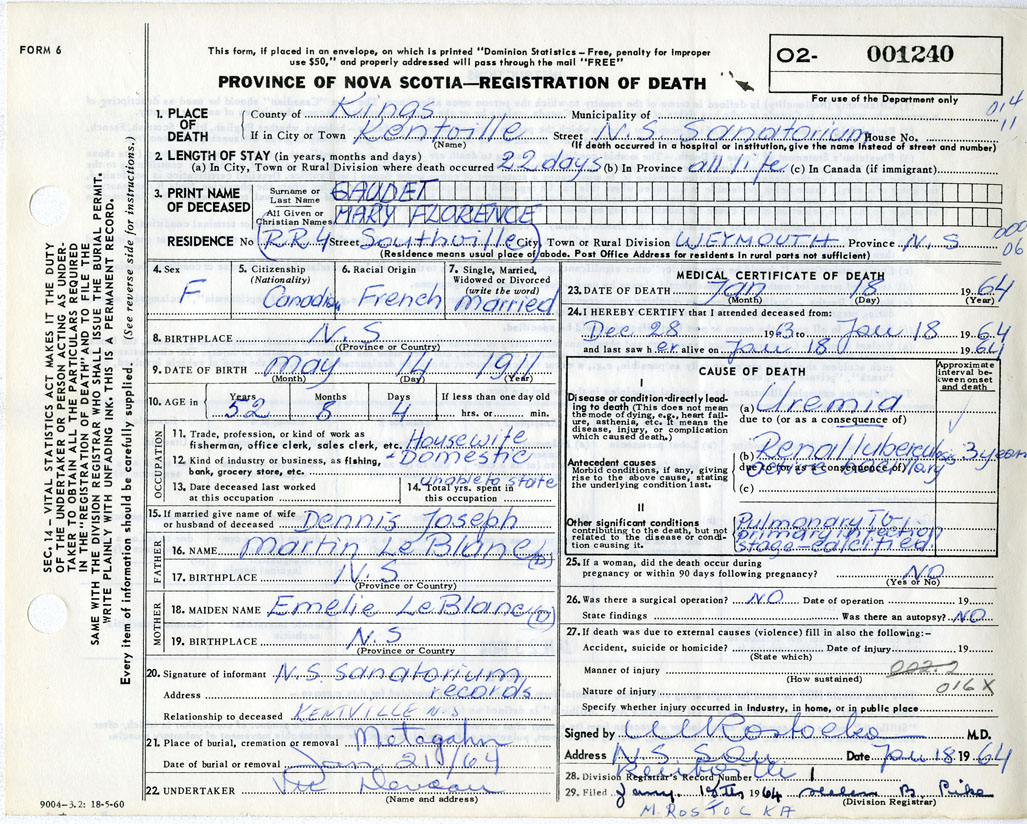 FORM 6
This form, if placed in an envelope, on which is printed "Dominion Statistics – Free, penalty for improper
use $50," and properly addressed will pass through the mail "FREE"
PROVINCE OF NOVA SCOTIA—REGISTRATION OF DEATH
O2- 001240
For use of the Department only
014
11
1. PLACE OF DEATH
County of Kings Municipality of
If in City or Town Kentville Street N.S. Sanatorium House No.
(Name) (If death occurred in a hospital or institution, give the name instead of street and number)
2. LENGTH OF STAY (in years, months and days)
(a) In City, Town or Rural Division where death occurred 22 days (b) In Province all life (c) In Canada (if immigrant)
3. PRINT NAME OF DECEASED
Surname or Last Name GAUDET
All Given or Christian Names MARY FLORENCE
RESIDENCE No (RR4 Street Southville) City, Town or Rural Division WEYMOUTH Province N.S
(Residence means usual place of abode. Post Office Address for residents in rural parts not sufficient)
000
06
4. Sex F
5. Citizenship (Nationality) Canadian
6. Racial Origin French
7. Single, Married, Widowed or Divorced (write the word) married
8. BIRTHPLACE N.S
(Province or Country)
9. DATE OF BIRTH May 14 1911
(Month) (Day) (Year)
10. AGE in Years 52 Months 8 Days 4 If less than one day old hrs. or min.
OCCUPATION
11. Trade, profession or kind of work as fisherman, office clerk, sales clerk, etc. Housewife
12. Kind of industry or business, as fishing, bank, grocery store, etc. - Domestic
13. Date deceased last worked at this occupation
14. Total yrs. spent in this occupation unable to state
15. If married give name of wife or husband of deceased Dennis Joseph
FATHER
16. NAME Martin LeBlanc (D)
17. BIRTHPLACE N.S
(Province or Country)
MOTHER
18. MAIDEN NAME Emelie LeBlanc (D)
19. BIRTHPLACE N.S
(Province or Country)
20. Signature of informant N.S. Sanatorium
Address records
Relationship to deceased KENTVILLE N.S
21. Place of burial, cremation or removal Metagahn
Date of burial or removal Jan. 21/64
22. UNDERTAKER Vic Deveau
(Name and address)
9004–3.2: 18-5-60
MEDICAL CERTIFICATE OF DEATH
23. DATE OF DEATH Jan 18 1964
(Month) (Day) (Year)
24. I HEREBY CERTIFY that I attended deceased from:
Dec. 28 1963 to Jan 18 1964
and last saw her alive on Jan 18 1964
CAUSE OF DEATH
Approximate interval between onset and death
I
Disease or condition directly leading to death (This does not mean the mode of dying, e.g., heart failure, asthenia, etc. It means the disease, injury, or complication which caused death.)
(a) Uremia
due to (or as a consequence of)
Antecedent causes
Morbid conditions, if any, giving rise to the above cause, stating the underlying condition last.
(b) Renal tuberculosis 3 years
due to (or as a consequence of)
(c)
II
Other significant conditions
contributing to the death, but not related to the disease or condition causing it.
Pulmonary TB-
primary infection
stage-calcified.
25. If a woman, did the death occur during pregnancy or within 90 days following pregnancy? NO
(Yes or No)
26. Was there a surgical operation? NO Date of operation 19
State findings Was there an autopsy? NO
27. If death was due to external causes (violence) fill in also the following:–
Accident, suicide or homicide? Date of injury 19
(State which)
Manner of injury
(How sustained)
Nature of injury 016X
Specify whether injury occurred in Industry, in home, or in public place
Signed by M Rostocka M.D.
Address N.S. San Date Jan 18 1964
Kentville
28. Division Registrar's Record Number 1
29. Filed Jany. 18th 1964 B. Pike
(Division Registrar)
M. ROSTOCKA
SEC. 14 – VITAL STATISTICS ACT MAKES IT THE DUTY
OF THE UNDERTAKER OR PERSON ACTING AS UNDER-
TAKER TO OBTAIN ALL THE PARTICULARS REQUIRED
IN THE "REGISTRATION OF DEATH" AND TO FILE THE
SAME WITH THE DIVISION REGISTRAR WHO SHALL ISSUE THE BURIAL PERMIT.
WRITE PLAINLY WITH UNFADING INK. THIS IS A PERMANENT RECORD.
Every item of information should be carefully supplied. (See reverse side for instructions.)